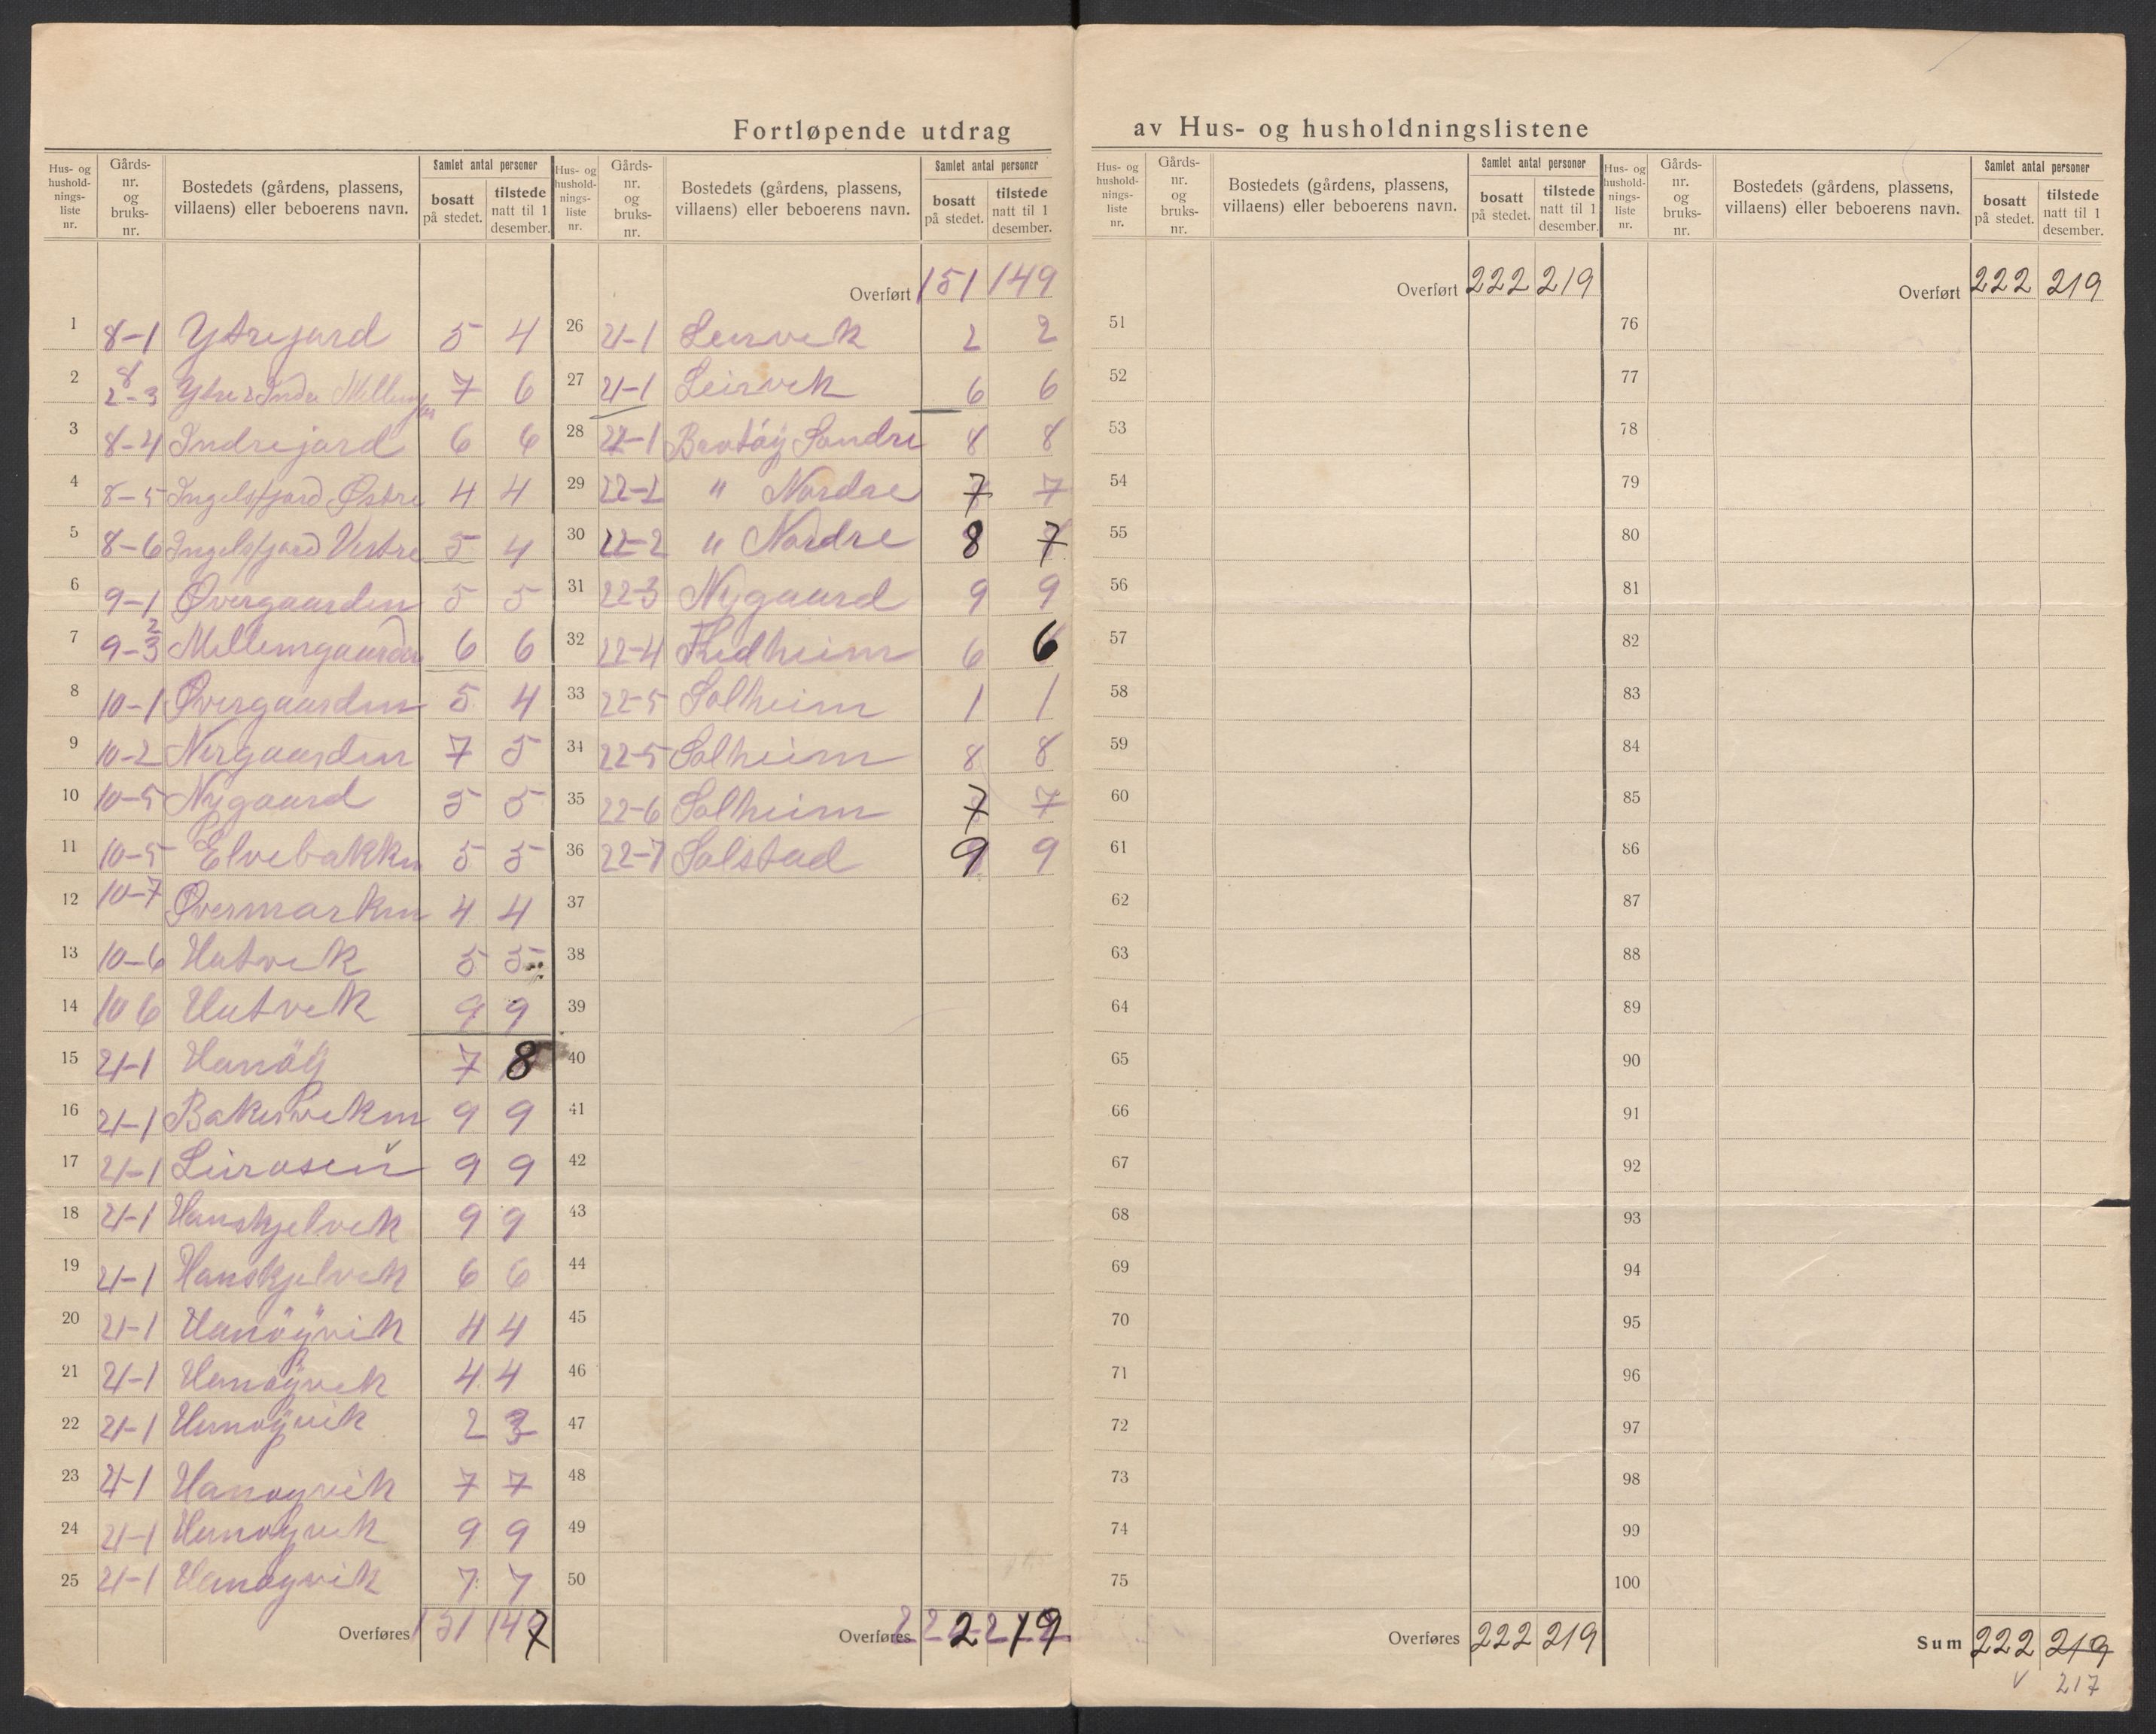 Fortløpende utdrag av Hus- og husholdningslistene
Hus- og husholdnings-liste nr. Gårds-nr. og bruks-nr. Bostedets (gårdens, plassens, villaens) eller beboerens navn. Samlet antal personer bosatt på stedet. tilstede natt til 1 desember.
1 8-1 Ytrejord 5 4
2 8 2-3 Ytre & Indre 7 6
3 8-4 Indrejord 6 6
4 8-5 Ingelsfjord Østre 4 4
5 8-6 Ingelsfjord Vestre 5 4
6 9-1 Øvergaarden 5 5
7 9-2 3 Mellemgaarden 6 6
8 10-1 Øvergaarden 5 4
9 10-2 Nergaarden 7 5
10 10-5 Nygaard 5 5
11 10-5 Elvebakken 5 5
12 10-7 Øvermarken 4 4
13 10-6 Hutvik 5 5
14 10 6 Hutvik 9 9
15 21-1 Hanöÿ 7 8
16 21-1 9 9
17 21-1 Leirosen 9 9
18 21-1 Hanskjelvik 9 9
19 21-1 Hanskjelvik 6 6
20 21-1 Hanöÿvik 4 4
21 21-1 Hanöyvik 4 4
22 21-1 Hanöyvik 2 3
23 21-1 Hanoyvik 7 7
24 21-1 Hanoyvik 9 9
25 21-1 Hanoyvik 7 7
Overføres 151 147
Hus- og husholdnings-liste nr. Gårds-nr. og bruks-nr. Bostedets (gårdens, plassens, villaens) eller beboerens navn. Samlet antal personer bosatt på stedet. tilstede natt til 1 desember.
Overført 151 149
26 21-1 Leirvik 2 2
27 21-1 Leirvik 6 6
28 22-1 Brotöÿ Söndre 8 8
29 22-2 " Nordre 7 7
30 22-2 " Nordre 8 7
31 22-3 Nygaard 9 9
32 22-4 Fredheim 6 6
33 22-5 Solheim 1 1
34 22-5 Solheim 8 8
35 22-6 Solheim 7 7
36 22-7 Solstad 9 9
37
38
39
40
41
42
43
44
45
46
47
48
49
50
Overføres 222 219
Hus- og husholdnings-liste nr. Gårds-nr. og bruks-nr. Bostedets (gårdens, plassens, villaens) eller beboerens navn. Samlet antal personer bosatt på stedet. tilstede natt til 1 desember.
Overført 222 219
51
52
53
54
55
56
57
58
59
60
61
62
63
64
65
66
67
68
69
70
71
72
73
74
75
Overføres 222 219
Hus- og husholdnings-liste nr. Gårds-nr. og bruks-nr. Bostedets (gårdens, plassens, villaens) eller beboerens navn. Samlet antal personer bosatt på stedet. tilstede natt til 1 desember.
Overført 222 219
76
77
78
79
80
81
82
83
84
85
86
87
88
89
90
91
92
93
94
95
96
97
98
99
100
Sum 222 219
v 217